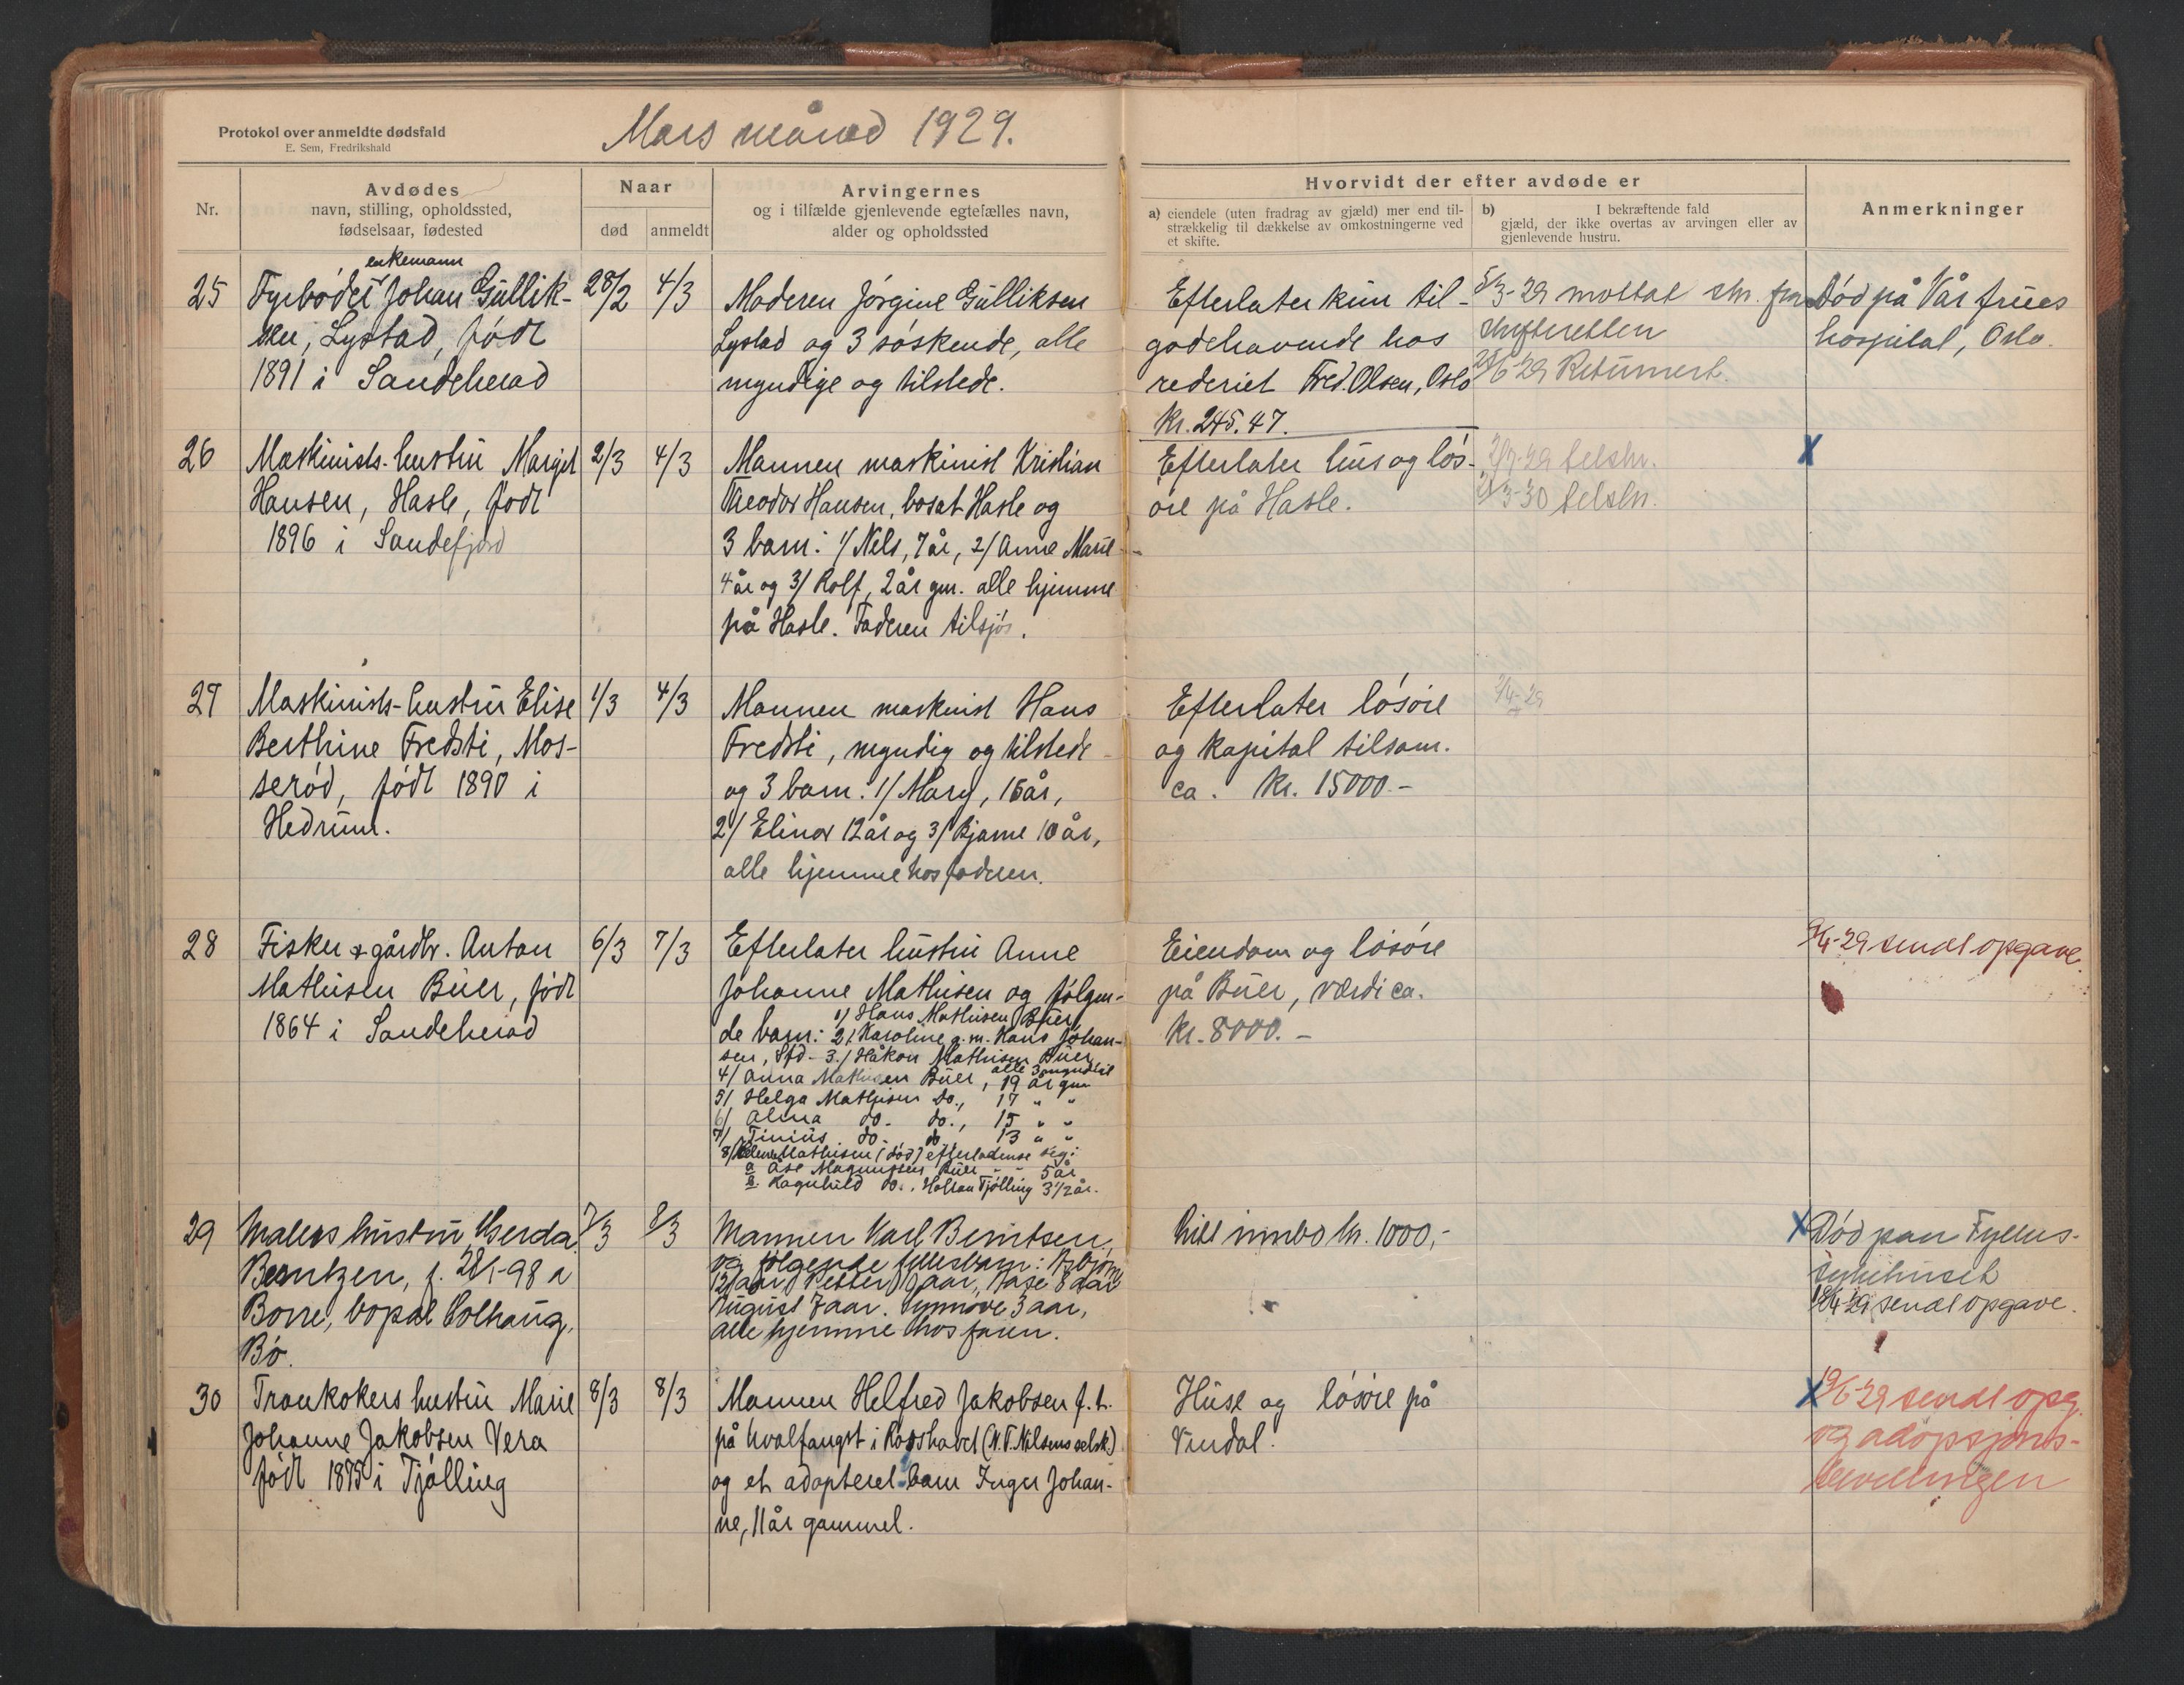 Protokol over anmeldte dødsfald
E. Sem, Fredrikshald
Mars måned 1929.
Nr.
Avdødes
navn, stilling, opholdssted,
fødselsaar, fødested
Naar
død
anmeldt
Arvingernes
og i tilfælde gjenlevende egtefælles navn,
alder og opholdssted
Hvorvidt der efter avdøde er
a) eiendele (uten fradrag av gjæld) mer end til-
strækkelig til dækkelse av omkostningerne ved
et skifte.
b) I bekræftende fald
gjæld, der ikke overtas av arvingen eller av
gjenlevende hustru.
Anmerkninger
25
enkemann
Fyrbøder Johan Gullik-
sen, Lystad, født
1891 i Sandeherad
28/2
4/3
Moderen Jørgine Gulliksen
Lystad og 3 søskende, alle
myndige og tilstede.
Efterlater kun til-
godehavende hos
rederiet Fred. Olsen, Oslo
kr. 245.47.
5/3-29 mottat skr. fra
skifteretten
6-29 Returnert.
Død på Vår frues
hospital, Oslo.
26
Maskinists-hustru Margit
Hansen, Hasle, født
1896 i Sandefjord
2/3
4/3
Mannen maskinist Kristian
Theodor Hansen, bosat Hasle og
3 barn: 1/ Nels, 7 år, 2/ Anne Marie
4 år og 3/ Rolf, 2 år gm. alle hjemme
på Hasle. Faderen tilsjøs.
Efterlater hus og løs-
øre på Hasle.
-29
3-30
x
27
Maskinists-hustru Elise
Berthine Fredsti, Mos-
serød, født 1890 i
Hedrum.
1/3
4/3
Mannen maskinist Hans
Fredsti, myndig og tilstede
og 3 barn: 1/ Mary, 15 år,
2/ Elinor 12 år og 3/ Bjarne 10 år,
alle hjemme hos faderen.
Efterlater løsøre
og kapital tilsam.
ca. kr. 15000.-
/4-29
28
Fisker & gårdbr. Anton
Mathisen Buer, født
1864 i Sandeherad
6/3
7/3
Efterlater hustru Anne
Johanne Mathisen og følgen-
1) Hans Mathisen Buer
de barn: 2/ Karoline g.m. Hans Johan-
sen, Sfd - 3/ Håkon Mathisen Buer
alle 3
4/ Anna Mathisen Buer, 19 år gm
5/ Helga Mathisen do., 17 " "
6/ Alma do. do., 15 " "
7/ Tinius do. do 13 " "
8/ Mathisen (død) efterladende seg:
a Åse Magnussen Buer - - 5 år
b. Ragnhild do., Holtan Tjølling 3 1/2 år.
Eiendom og løsøre
på Buer, værdi ca.
kr. 8000.-
/4-29 sendt opgave.
29
Malers hustru Gerda
Berntzen, f. 28/1-98 i
Borre, bopæl Solhaug,
Bø.
7/3
8/3
Mannen Karl Berntsen,
og følgende fellesbarn: Asbjørn
12 aar, Petter 9 aar, Aase 8 aar
August 7 aar. Synnøve 3 aar,
alle hjemme hos faren.
Litt innbo kr. 1000,-
x Død paa Fylkes-
sykehuset
/4 29 sendt opgave.
30
Trankokers hustru Marie
Johanne Jakobsen Vera
født 1875 i Tjølling
8/3
8/3
Mannen Helfred Jakobsen f.t.
på hvalfangst i Rosshavet (N.T. Nilsens selsk.)
og et adopteret barn Inger Johan-
ne, 11 år gammel.
Huse og løsøre på
Vindal.
x 19/6-29 sendt opg.
og adopsjons-
bevillingen